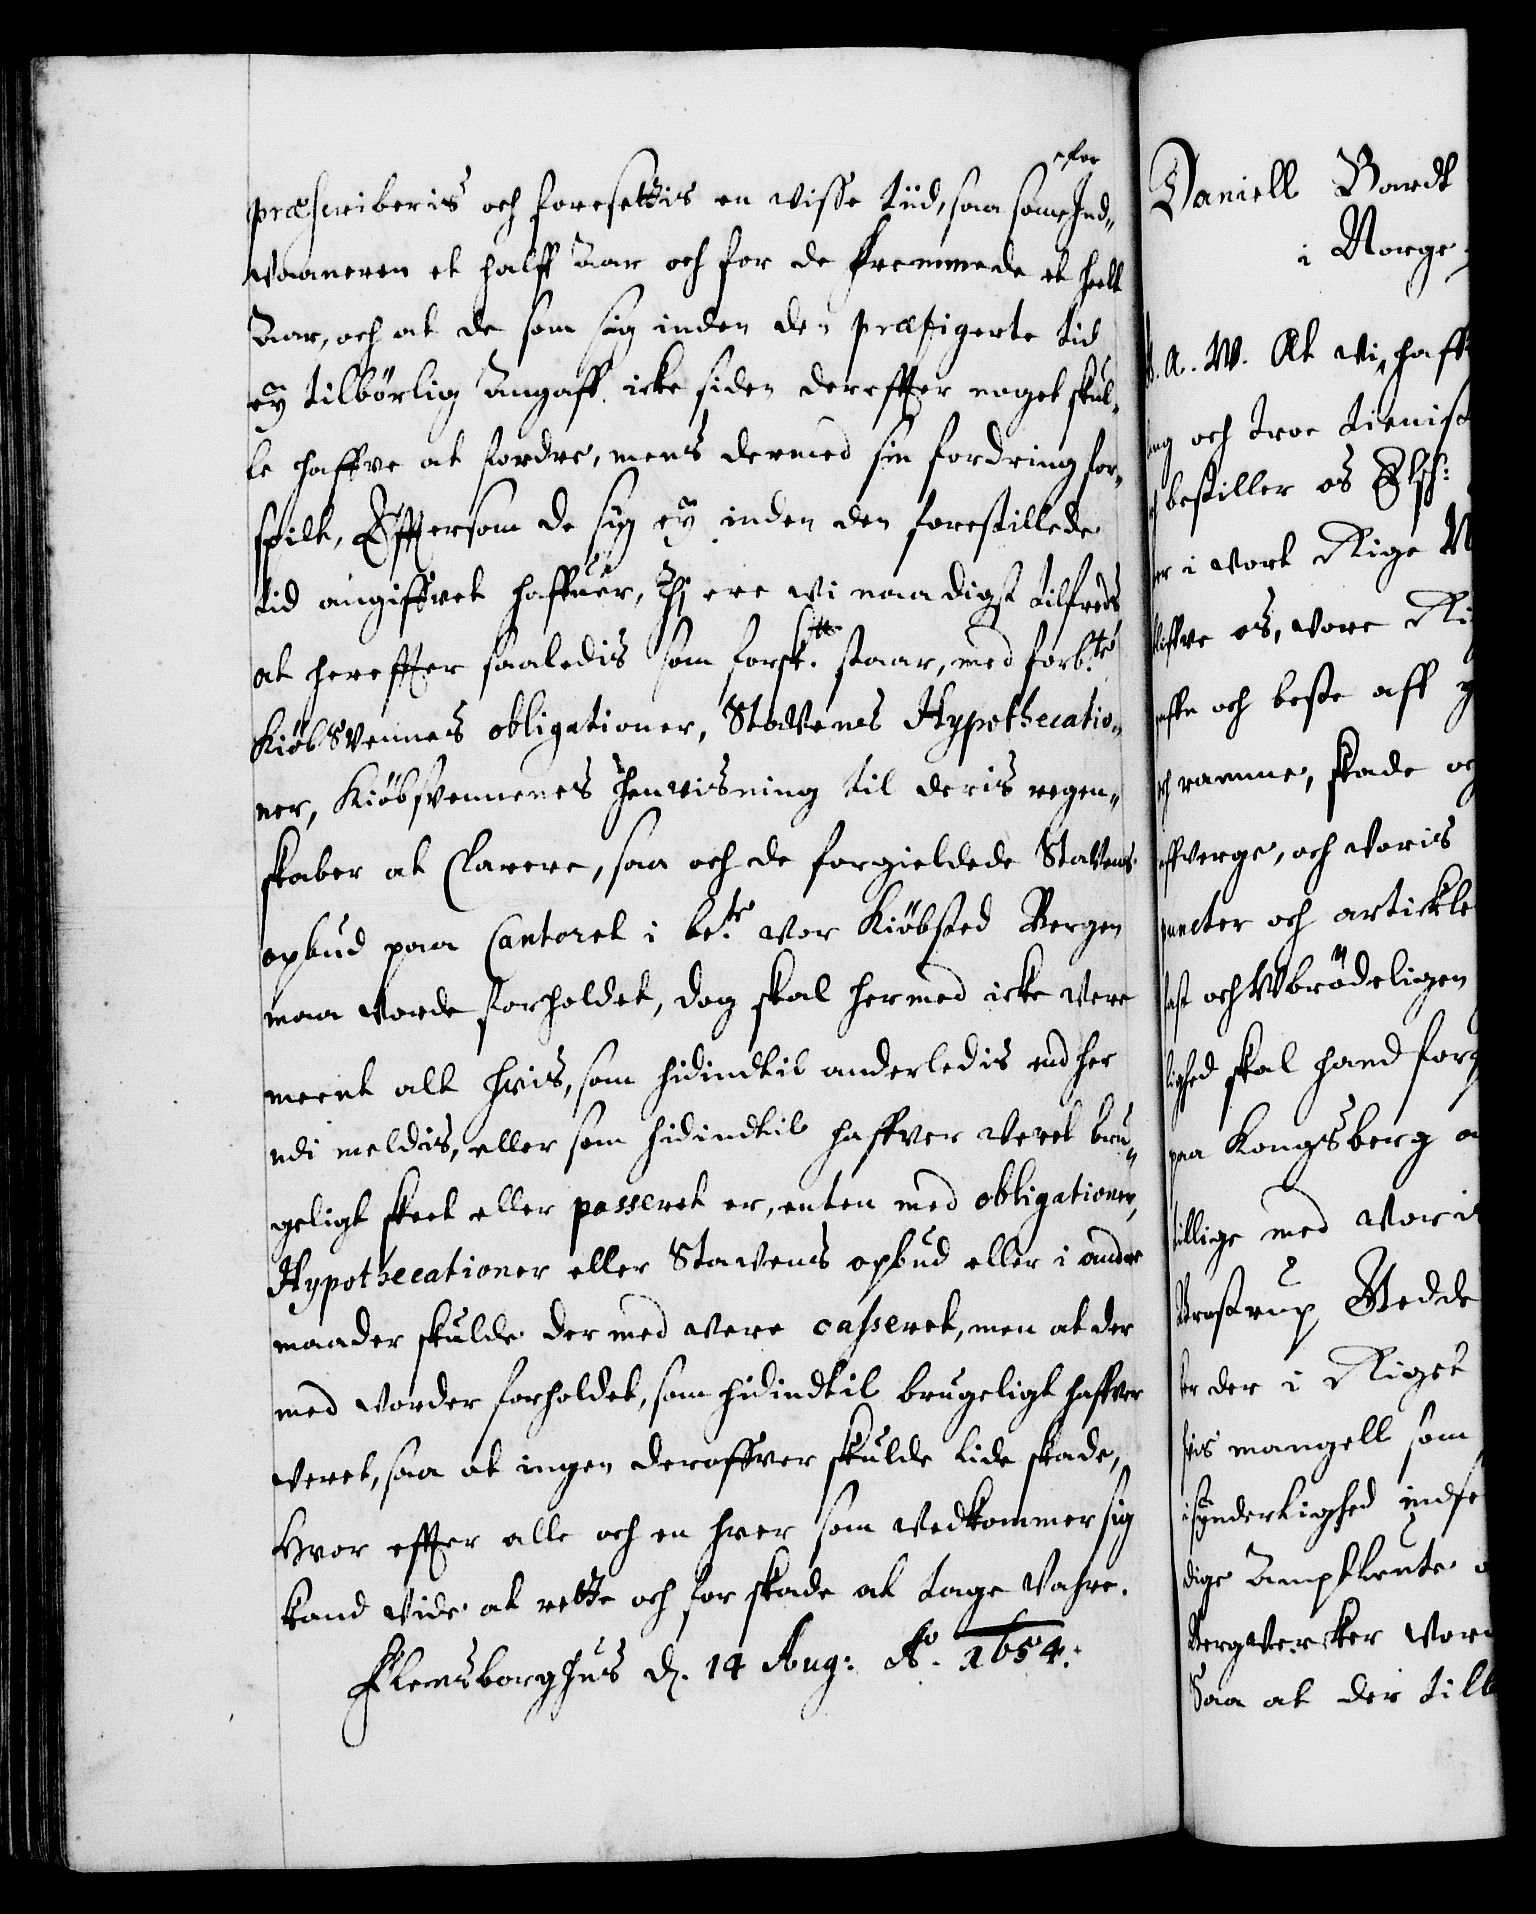 præscriberis och foresettis en visse tiid, saa som for Ind„
vaaneren et halff Aar och for de fremmede et heelt
Aar, och at de som sig inden den præfigerte tid
eÿ tilbørlig Angaff. icke siden dereffter noget skul„
le haffve at fordre, mens dermed sin fordring for„
spilt, Efftersom de sig eÿ inden den forestillede
tid angiffvet haffuer, Thi ere wi naadigst tilfreds
at hereffter saaledis som forskr. staar, med forb.te
Kiøbsvennes obligationer, Stavens Hypothecatio„
ner, Kiøbsvennenes henvisning til deris regen„
skaber at Clarere, saa och de forgieldede Stavens
opbud paa Cantoret i be.te vor Kiøbsted Bergen
maa vorde forholdet, dog skal hermed icke vere
meent alt hvis, som hidindtil anderledis end her
udi meldis, eller som hidindtil haffver veret bru„
geligt skeet eller passeret er, enten med obligationer,
Hypothecationer eller Stavens opbud eller i andre
maader skulde der med vere casseret, men at der
med vorder forholdet, som hidindtil brugeligt haffver
veret, saa at ingen deroffver skulde lide skade,
Hvor effter alle och en hver som vedkommer sig
kand vide at rette och for skade at tage vahre.
Flensborghus d. 14 Aug: Ao. 1654.
Daniell Bardt
i Norge
A. W. At vi haff
och troe tieniste
bestiller os Elsk:
i vort Rige N
os, vore Ri
och beste aff
ramme, skade och
verge, och voris
puncter och artickle
och Ubrødeligen
skal hand forg
paa Kongsberg
tillige med voris
Vedde
der i Riget
mangell som
synderlighed indse
dige Amptleute
Bergvercker vor
Saa at der tilb